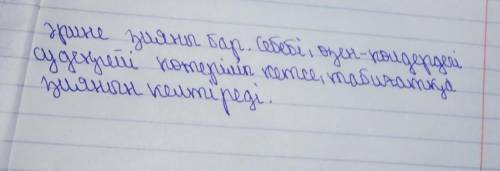 әрине зияны бар. Себебі, өзен-көлдердегі
судеңгейі көтеріліп кетсе, табиғатқа
зиянын келтіреді.